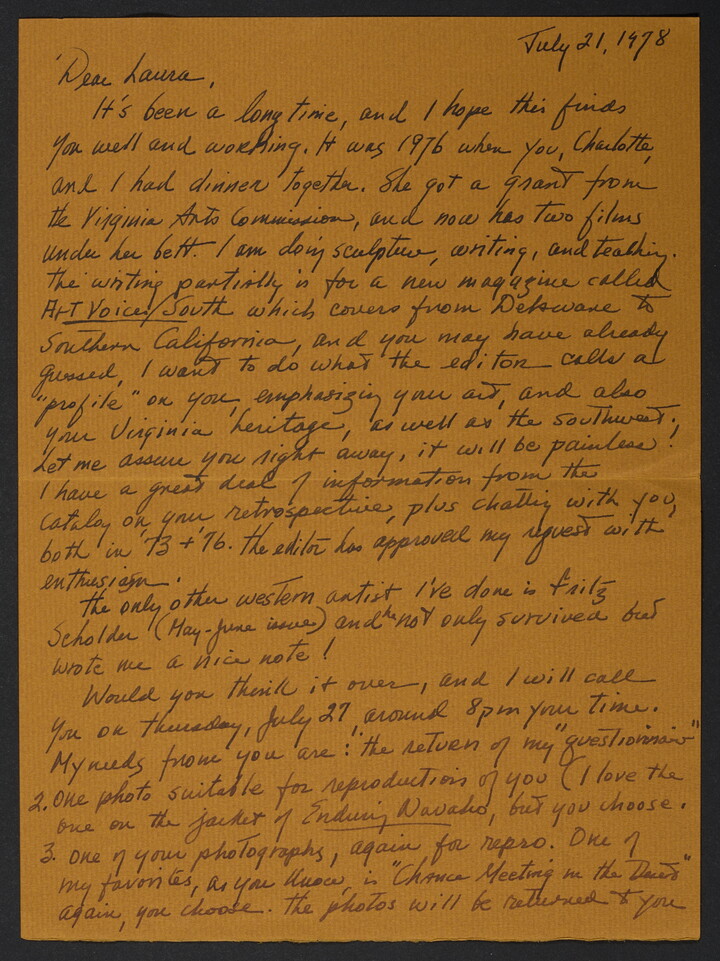 July 21, 1978
Dear Laura,
It's been a long time, and I hope this finds
you well and working. It was 1976 when you, Charlotte,
and I had dinner together. She got a grant from
the Virginia Arts Commission, and now has two films
under her belt. I am doing sculpture, writing, and teaching.
The writing partially is for a new magazine called
Art Voices/South which covers from Delaware to
Southern California, and you may have already
guessed, I want to do what the editor calls a
"profile" on you, emphasizing your art, and also
your Virginia heritage, as well as the southwest.
Let me assure you right away, it will be painless!
I have a great deal of information from the
catalog on your retrospective, plus chatting with you,
both in '73 + '76. The editor has approved my request with
enthusiasm.
The only other western artist I've done is Fritz
Scholder (May-June issue) and he not only survived but
wrote me a nice note!
Would you think it over, and I will call
you on Thursday, July 27, around 8pm your time.
My needs from you are: 1. the return of my "questionnair"
2. One photo suitable for reproduction of you (I love the
one on the jacket of Enduring Navaho, but you choose.
3. One of your photographs, again for repro. One of
my favorites, as you know, is "Chance Meeting in the Desert"
again, you choose. The photos will be returned to you